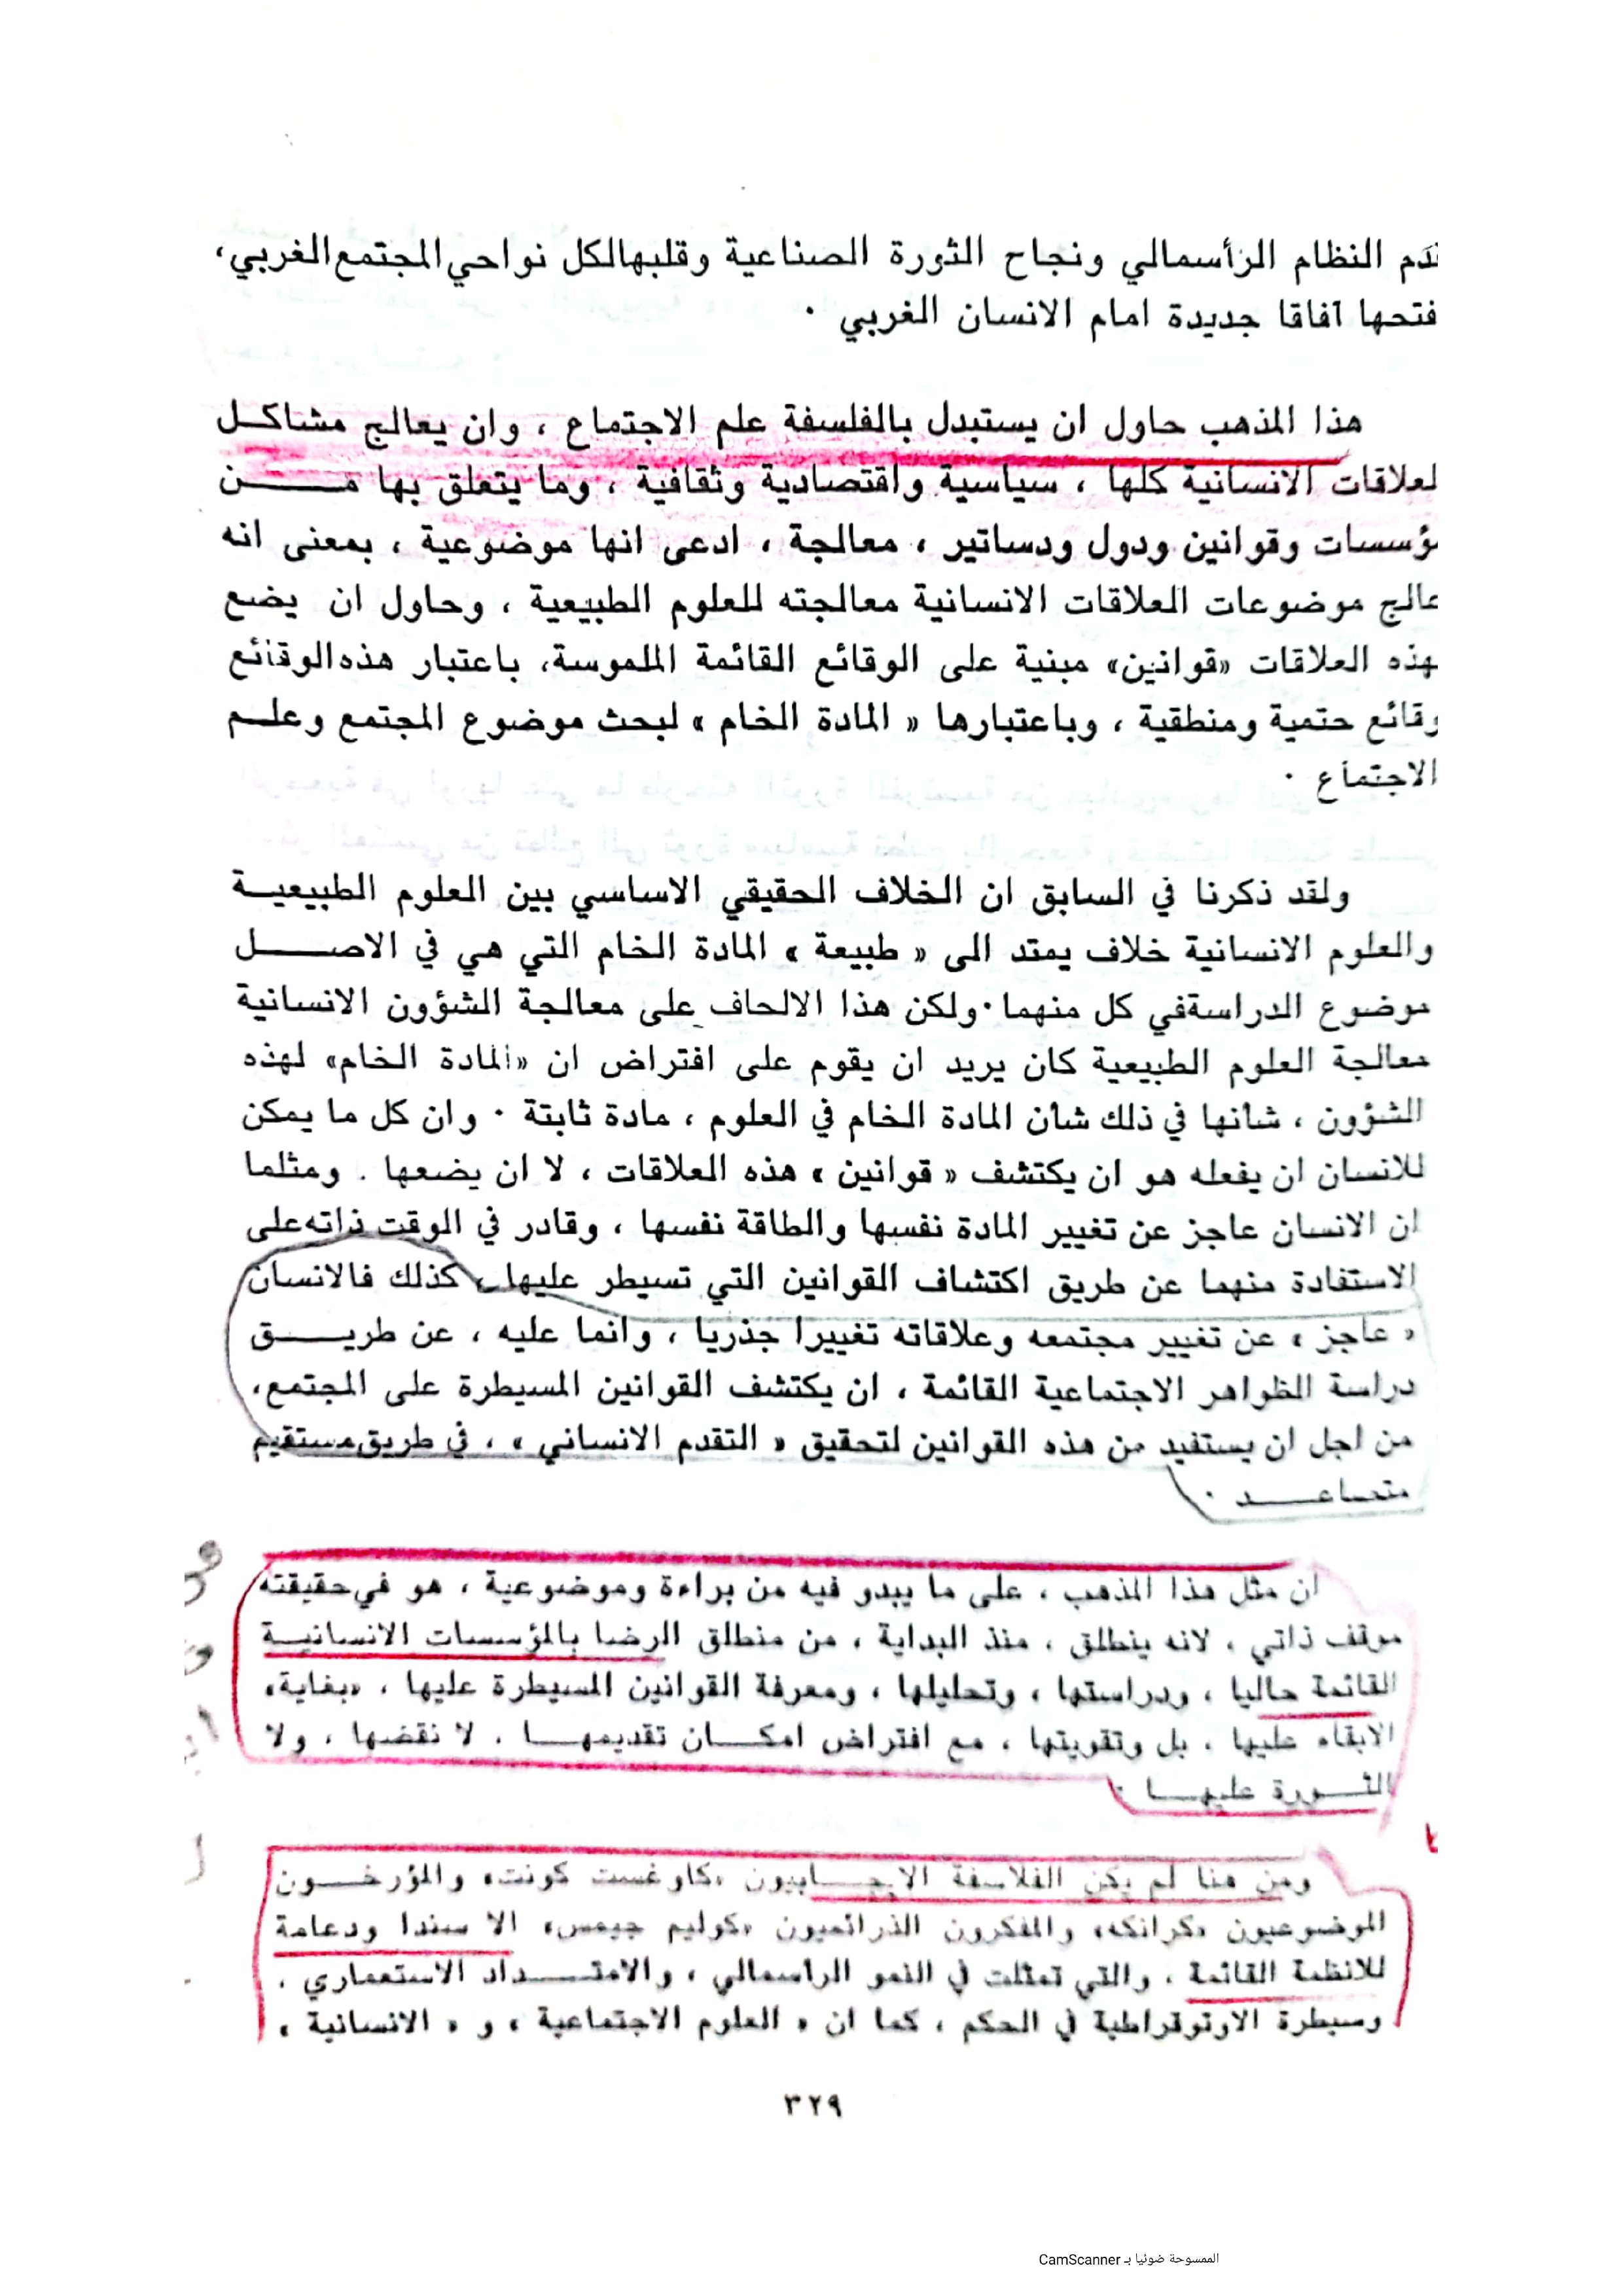 قدم النظام الرأسمالي ونجاح الثورة الصناعية وقلبها لكل نواحي المجتمع الغربي،
فتحها آفاقا جديدة امام الانسان الغربي ·
هذا المذهب حاول ان يستبدل بالفلسفة علم الاجتماع ، وان يعالج مشاكل
لعلاقات الانسانية كلها ، سياسية واقتصادية وثقافية ، وما يتعلق بها من
ؤسسات وقوانين ودول ودساتير ، معالجة ، ادعى انها موضوعية ، بمعنى انه
عالج موضوعات العلاقات الانسانية معالجته للعلوم الطبيعية ، وحاول ان يضع
لهذه العلاقات «قوانين» مبنية على الوقائع القائمة الملموسة، باعتبار هذه الوقائع
وقائع حتمية ومنطقية ، وباعتبارها « المادة الخام » لبحث موضوع المجتمع وعلم
الاجتماع ·
ولقد ذكرنا في السابق ان الخلاف الحقيقي الاساسي بين العلوم الطبيعية
والعلوم الانسانية خلاف يمتد الى « طبيعة » المادة الخام التي هي في الاصل
موضوع الدراسة في كل منهما · ولكن هذا الالحاف على معالجة الشؤون الانسانية
معالجة العلوم الطبيعية كان يريد ان يقوم على افتراض ان «المادة الخام» لهذه
الشؤون ، شأنها في ذلك شأن المادة الخام في العلوم ، مادة ثابتة · وان كل ما يمكن
للانسان ان يفعله هو ان يكتشف « قوانين » هذه العلاقات ، لا ان يضعها . ومثلما
ان الانسان عاجز عن تغيير المادة نفسها والطاقة نفسها ، وقادر في الوقت ذاته على
الاستفادة منهما عن طريق اكتشاف القوانين التي تسيطر عليها ، كذلك فالانسان
« عاجز » عن تغيير مجتمعه وعلاقاته تغييرا جذريا ، وانما عليه ، عن طريق
دراسة الظواهر الاجتماعية القائمة ، ان يكتشف القوانين المسيطرة على المجتمع،
من اجل ان يستفيد من هذه القوانين لتحقيق « التقدم الانساني » ، في طريق مستقيم
متصاعد ·
ان مثل هذا المذهب ، على ما يبدو فيه من براءة وموضوعية ، هو في حقيقته
موقف ذاتي ، لانه ينطلق ، منذ البداية ، من منطلق الرضا بالمؤسسات الانسانية
القائمة حاليا ، ودراستها ، وتحليلها ، ومعرفة القوانين المسيطرة عليها ، «بغاية»
الابقاء عليها ، بل وتقويتها ، مع افتراض امكان تقديمها ، لا نقضها ، ولا
الثورة عليها ·
ومن هنا لم يكن الفلاسفة الايجابيون «كاوغست كونت» والمؤرخون
الموضوعيون «كرانكه» والمفكرون الذرائعيون «كوليم جيمس» الا سندا ودعامة
للانظمة القائمة ، والتي تمثلت في النمو الرأسمالي ، والامتداد الاستعماري ،
وسيطرة الاوتوقراطية في الحكم ، كما ان « العلوم الاجتماعية » و « الانسانية »
٣٢٩
الممسوحة ضوئيا بـ CamScanner